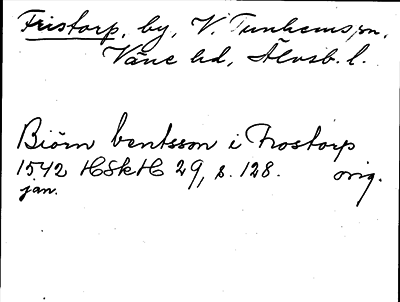 Fristorp, by, V. Tunhems sn,
Väne hd, Älvsb. l.
Biörn bentsson i Frostorp
1542 HSkH 29, s. 128. orig.
jan.